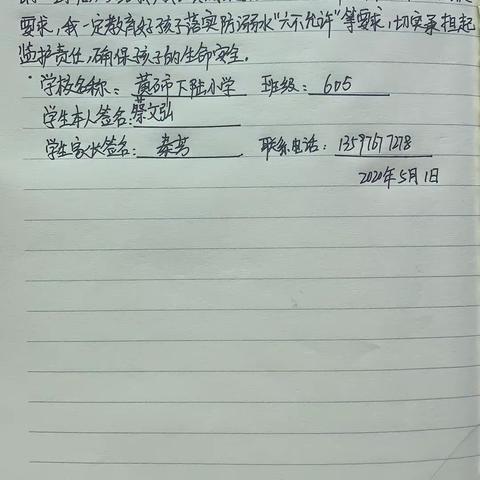 要求,我一定教育好孩子落实防溺水"六不允许"等要求,切实承担起
监护责任,确保孩子的生命安全。
学校名称: 黄石市下陆小学 班级: 605
学生本人签名:蔡文弘
学生家长签名: 秦芳 联系电话: 13597677278
2020年5月1日